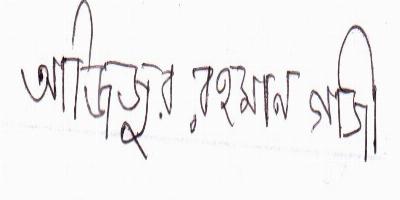 আজিজুর রহমান গাজী